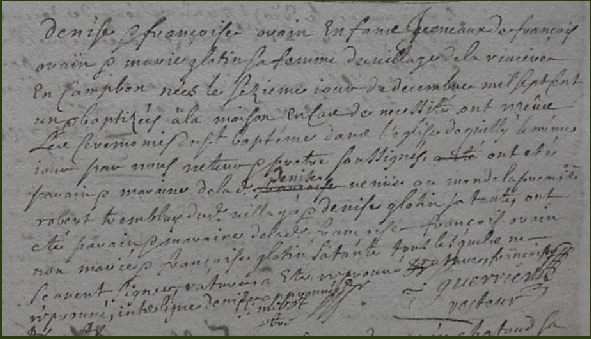 denise & françoise orain Enfans gemeaux de françois
orain & marie glotin sa femme du village de la rivière
En Campbon nées le sezieme iour de decembre mil sept cent
un & baptizées à la maison En Cas de necessité ont receue
Les Ceremonies dudt baptême dans l'eglise de quilly le même
iour par nous pretre soussignés ont eté
parain & maraine de lad. denise venüe au monde la première
robert tremblay dudt village & denise glotin sa tante, ont
eté parain & maraine de lad. francoise françois orain
non marié & françoise glotin sa tante tous lesquels ne
Scavent signer, rature
reprouvé, interligne denise approuvé
guerrien
recteur